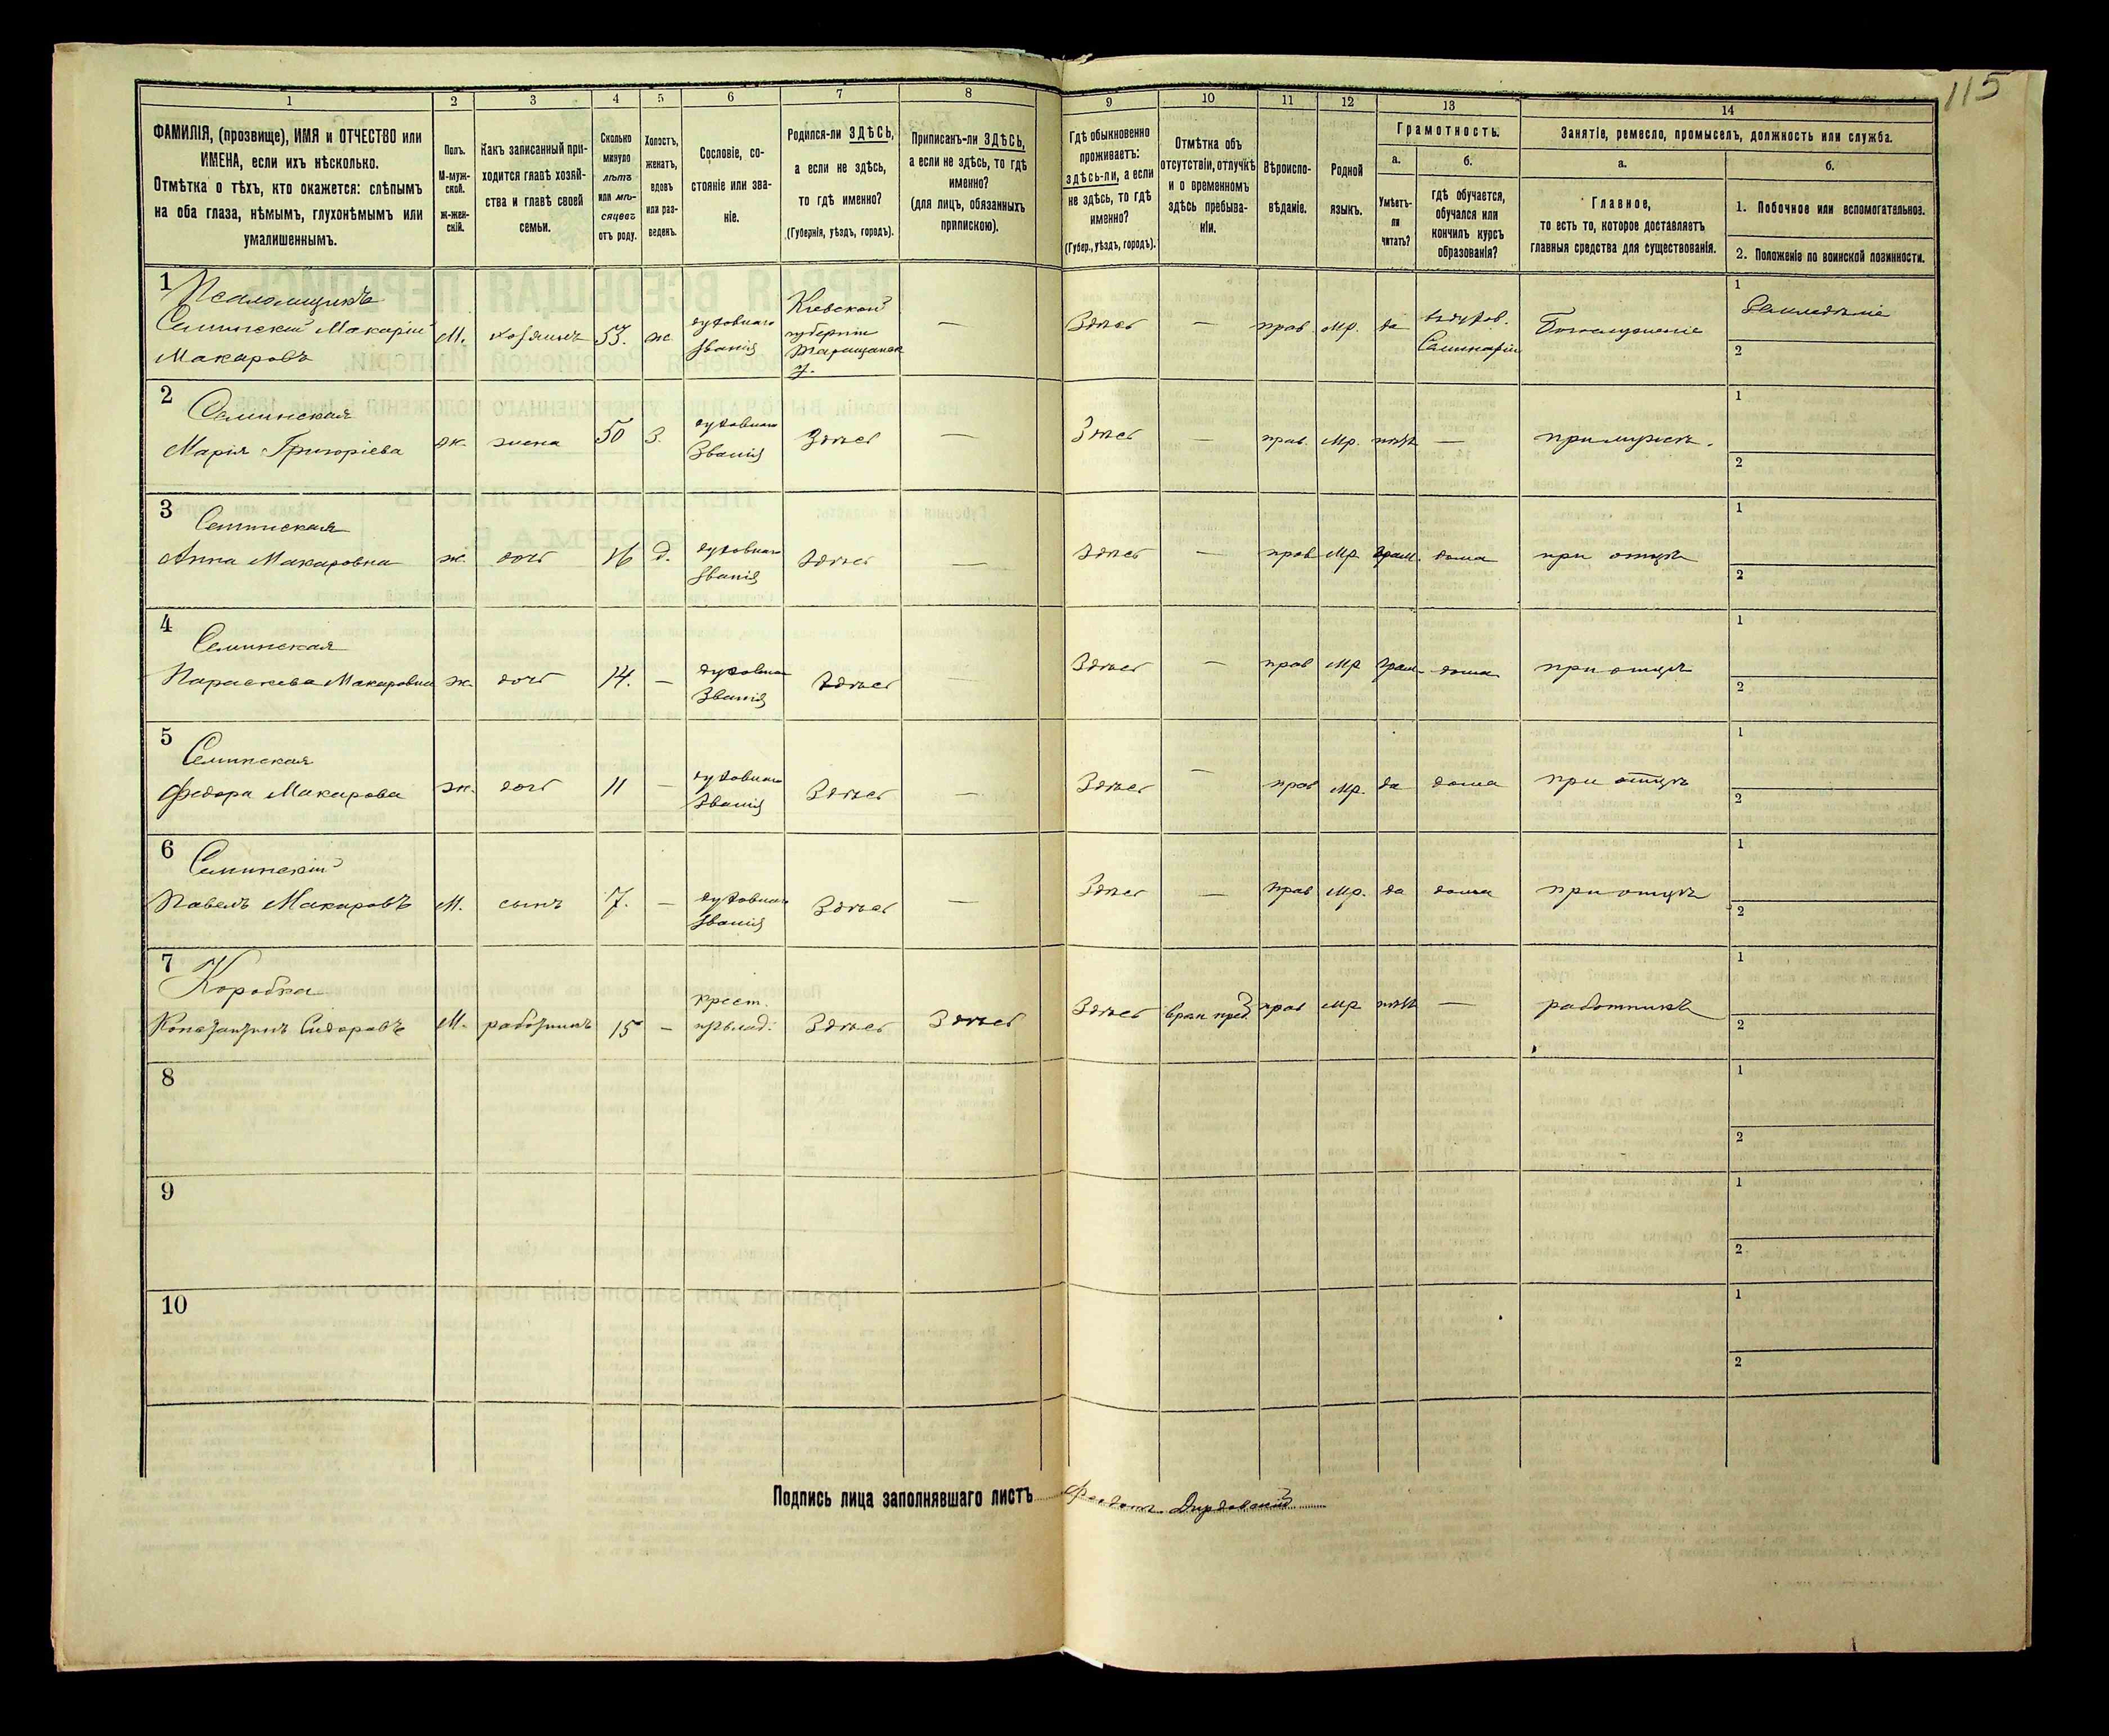 115
1 2 3 4 5 6 7 8 9 10 11 12 13 14
ФАМИЛІЯ, (прозвище), ИМЯ и ОТЧЕСТВО или
ИМЕНА, если ихъ нѣсколько.
Отмѣтка о тѣхъ, кто окажется: слѣпымъ
на оба глаза, нѣмымъ, глухонѣмымъ или
умалишеннымъ.
Полъ.
М-муж-
ской.
Ж-жен-
скій.
Какъ записанный при-
ходится главѣ хозяй-
ства и главѣ своей
семьи.
Сколько
минуло
лѣтъ
или мѣ-
сяцевъ
отъ роду.
Холостъ,
женатъ,
вдовъ
или раз-
веденъ.
Сословіе, со-
стояніе или зва-
ніе.
Родился-ли ЗДѢСЬ,
а если не здѣсь,
то гдѣ именно?
(Губернія, уѣздъ, городъ).
Приписанъ-ли ЗДѢСЬ,
а если не здѣсь, то гдѣ
именно?
(для лицъ, обязанныхъ
припискою).
Гдѣ обыкновенно
проживаетъ:
здѣсь-ли, а если
не здѣсь, то гдѣ
именно?
(Губер., уѣздъ, городъ).
Отмѣтка объ
отсутствіи, отлучкѣ
и о временномъ
здѣсь пребыва-
ніи.
Вѣроиспо-
вѣданіе.
Родной
языкъ.
Грамотность.
а.
Умѣетъ-
ли
читать?
б.
гдѣ обучается,
обучался или
кончилъ курсъ
образованія?
Занятіе, ремесло, промыселъ, должность или служба.
а.
Главное,
то есть то, которое доставляетъ
главныя средства для существованія.
б.
1. Побочное или вспомогательное.
2. Положеніе по воинской повинности.
1 Псаломщикъ
Семинскій Макарій
Макаровъ
М. хозяинъ 53. ж духовнаго
званія
Кіевской
губерніи
Таращанск
у.
— Здѣсь — прав. Мр. да
въ духов.
Семинаріи
Богослуженіе
1 Земледѣліе
2
2 Семинская
Марія Григоріева
ж. жена 50 з. духовнаго
Званія
Здѣсь — Здѣсь — прав. Мр. нѣтъ — при мужѣ.
1
2
3 Семинская
Анна Макаровна
ж. дочь 16 д. духовнаго
званія
Здѣсь — Здѣсь — прав Мр. грам. дома при отцѣ
1
2
4 Семинская
Параскева Макаровна
ж. дочь 14. — духовна
Званія
Здѣсь — Здѣсь — прав Мр грам. дома при отцѣ
1
2
5 Семинская
Федора Макарова
ж. дочь 11 — духовнаго
званія
Здѣсь — Здѣсь — прав Мр. да дома при отцѣ
1
2
6 Семинскій
Павелъ Макаровъ
М. сынъ 7. — духовнаго
званія
Здѣсь — Здѣсь — прав Мр. да дома при отцѣ
1
2
7 Коробка
Константинъ Сидоровъ
М. работникъ 15 — крест.
Здѣсь Здѣсь Здѣсь прав Мр нѣтъ — работникъ
1
2
8
1
2
9
1
2
10
1
2
Подпись лица заполнявшаго листъ